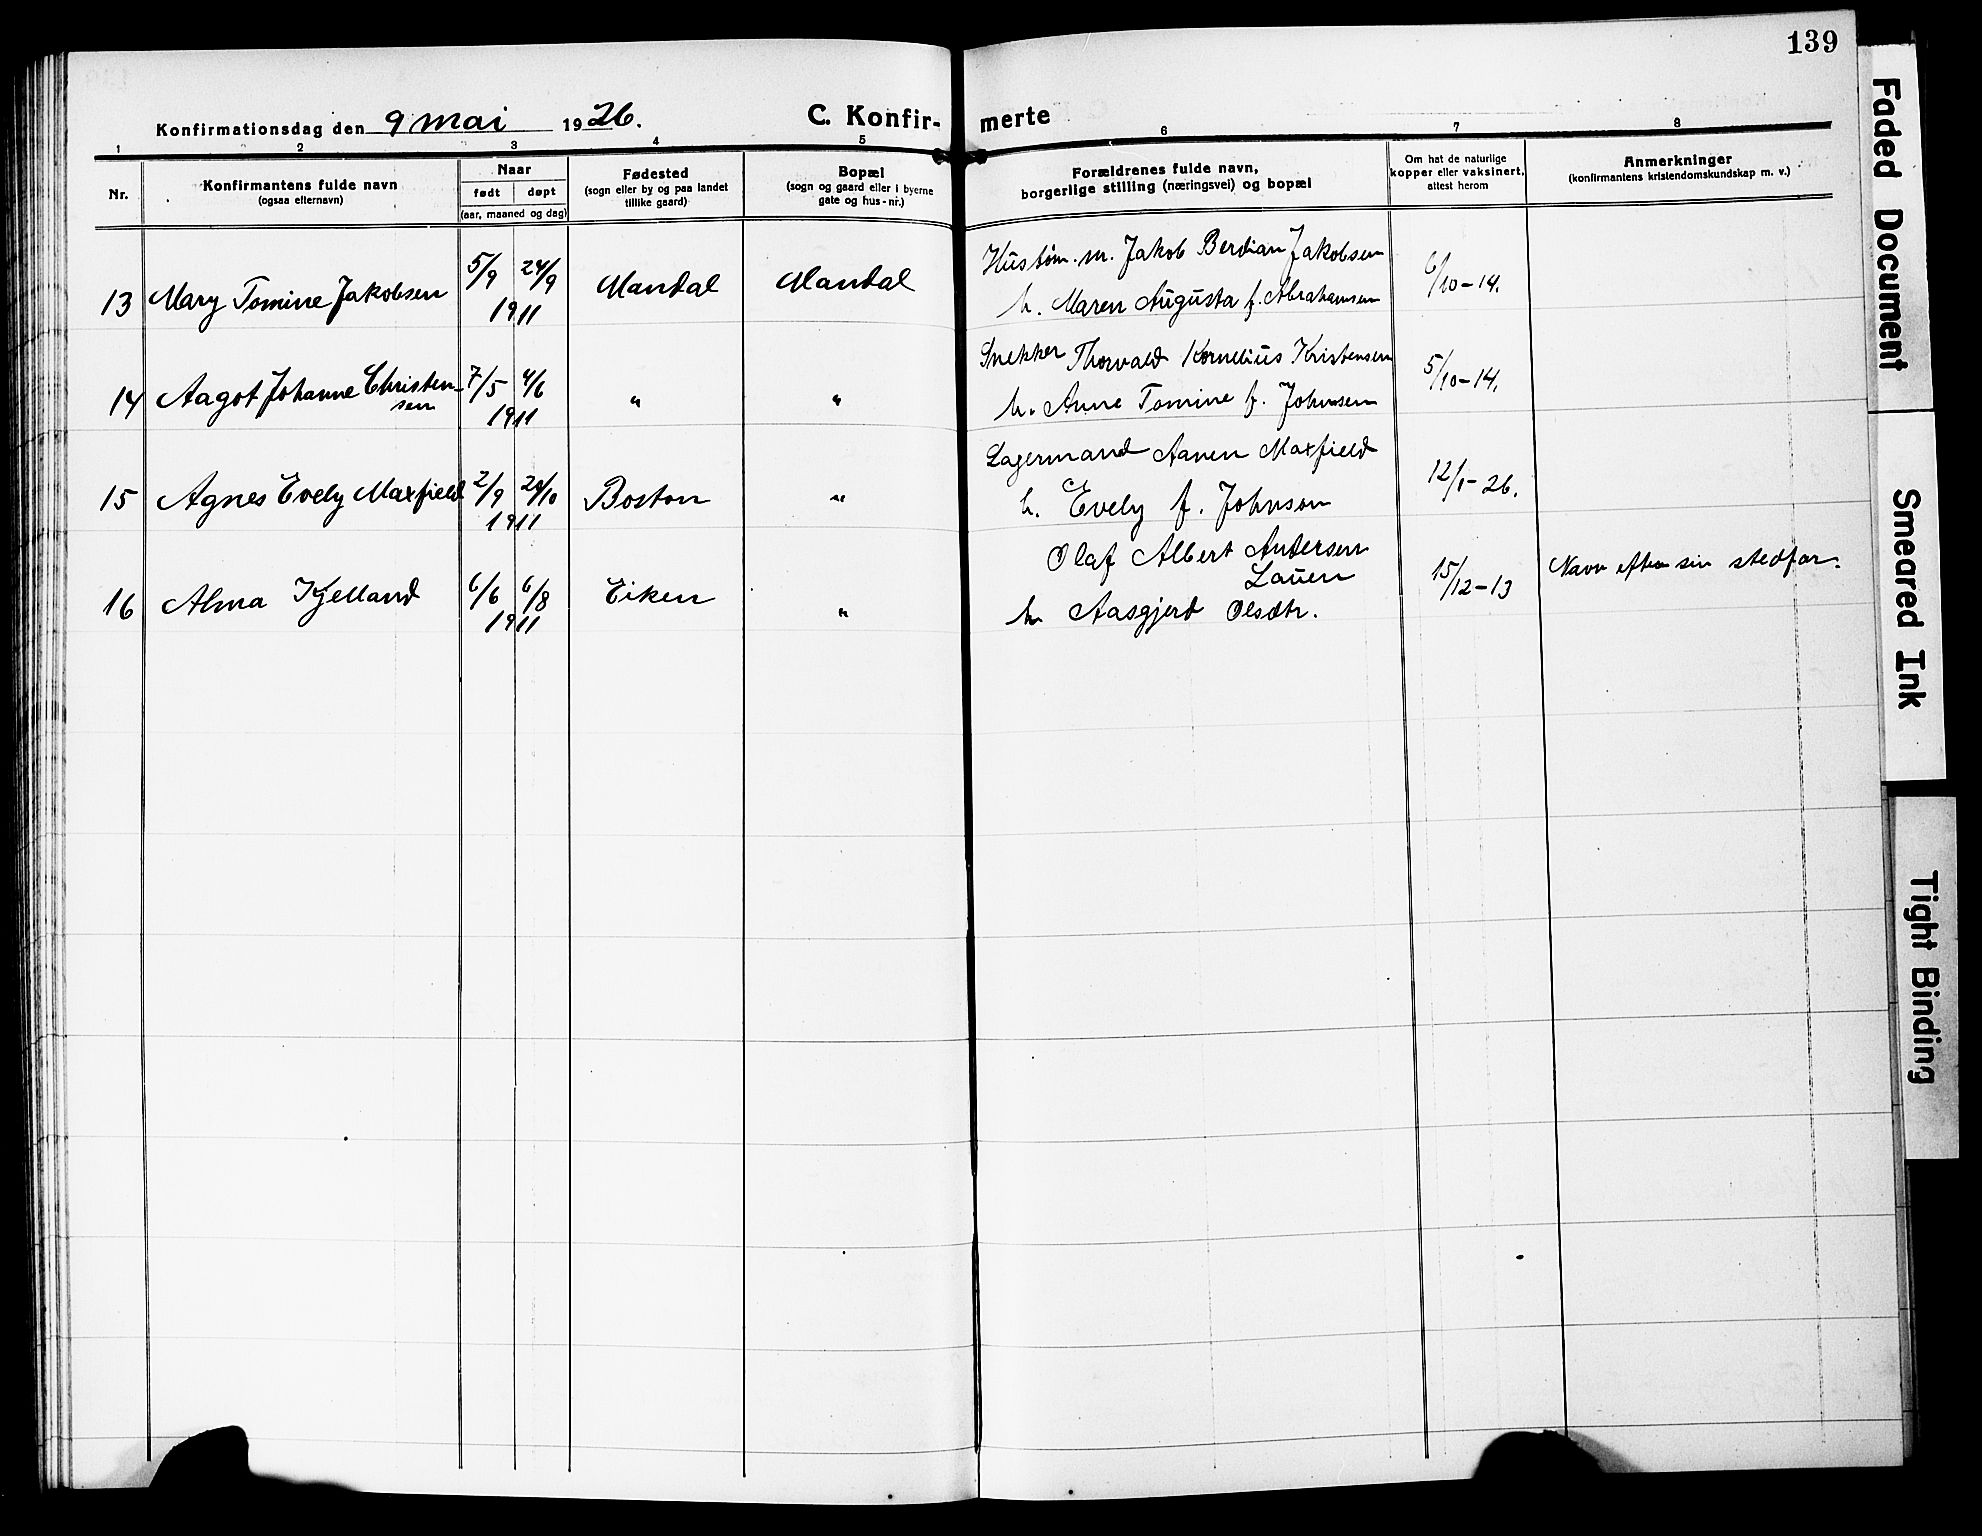 139
Konfirmationsdag den 9 mai 1926.
C. Konfir- merte
1 2 3 4 5 6 7 8
Nr.
Konfirmantens fulde navn
(ogsaa efternavn)
Naar
født døpt
(aar, maaned og dag)
Fødested
(sogn eller by og paa landet
tillike gaard)
Bopæl
(sogn og gaard eller i byerne
gate og hus-nr.)
Forældrenes fulde navn,
borgerlige stilling (næringsvei) og bopæl
Om hat de naturlige
kopper eller vaksinert,
attest herom
Anmerkninger
(konfirmantens kristendomskundskap m. v.)
13 Mary Tomine Jakobsen 5/9 24/9 1911 Mandal Mandal
Hustøm. m. Jakob Berdian Jakobsen
h. Maren Augusta f. Abrahamsen
6/10-14.
14 Aagot Johanne Christen-
sen
7/5 4/6 1911 " "
Snekker Thorvald Kornelius Kristensen
h. Anne Tomine f. Johnsen
5/10-14.
15 Agnes Evely Maxfield 2/9 24/10 1911 Boston "
Lagermand Aanen Maxfield
h. Evely f. Johnson
12/1-26.
16 Alma Kjelland 6/6 6/8 1911 Eiken "
Olaf Albert Andersen
Lauen
h Aasgjerd Olsdtr.
15/12-13
Navn efter sin stedfar.
Faded Document
Smeared Ink
Tight Binding